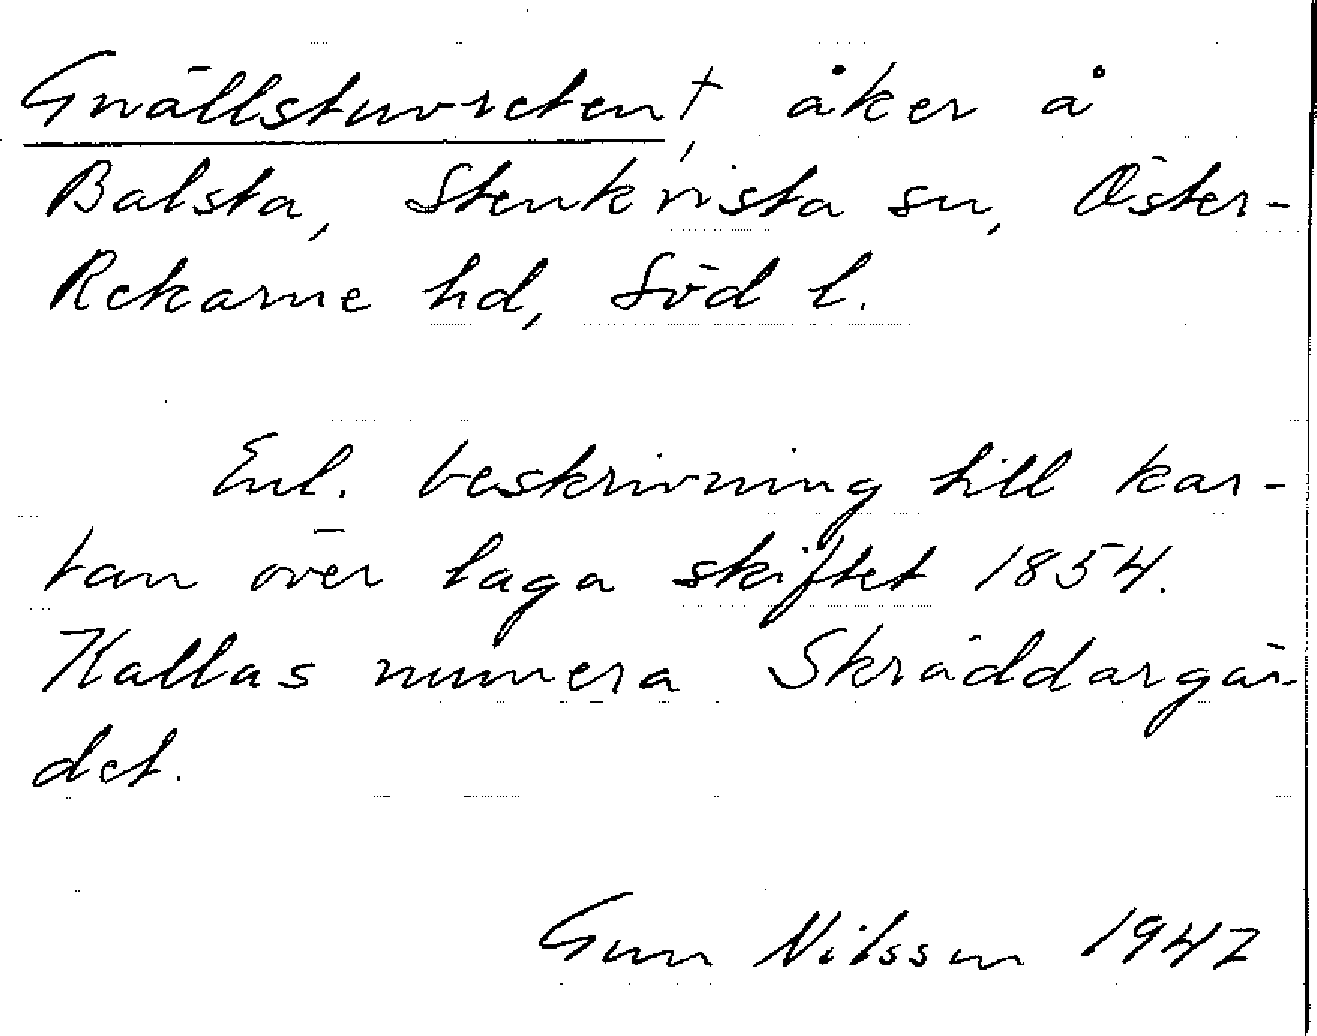 Gnällstuvreten†, åker å
Balsta, Stenkvista sn, Öster-
Rekarne hd, Söd l.
Enl. beskrivning till kar-
tan över laga skiftet 1854.
Kallas numera Skräddargär-
det.
Gun Nilsson 1947